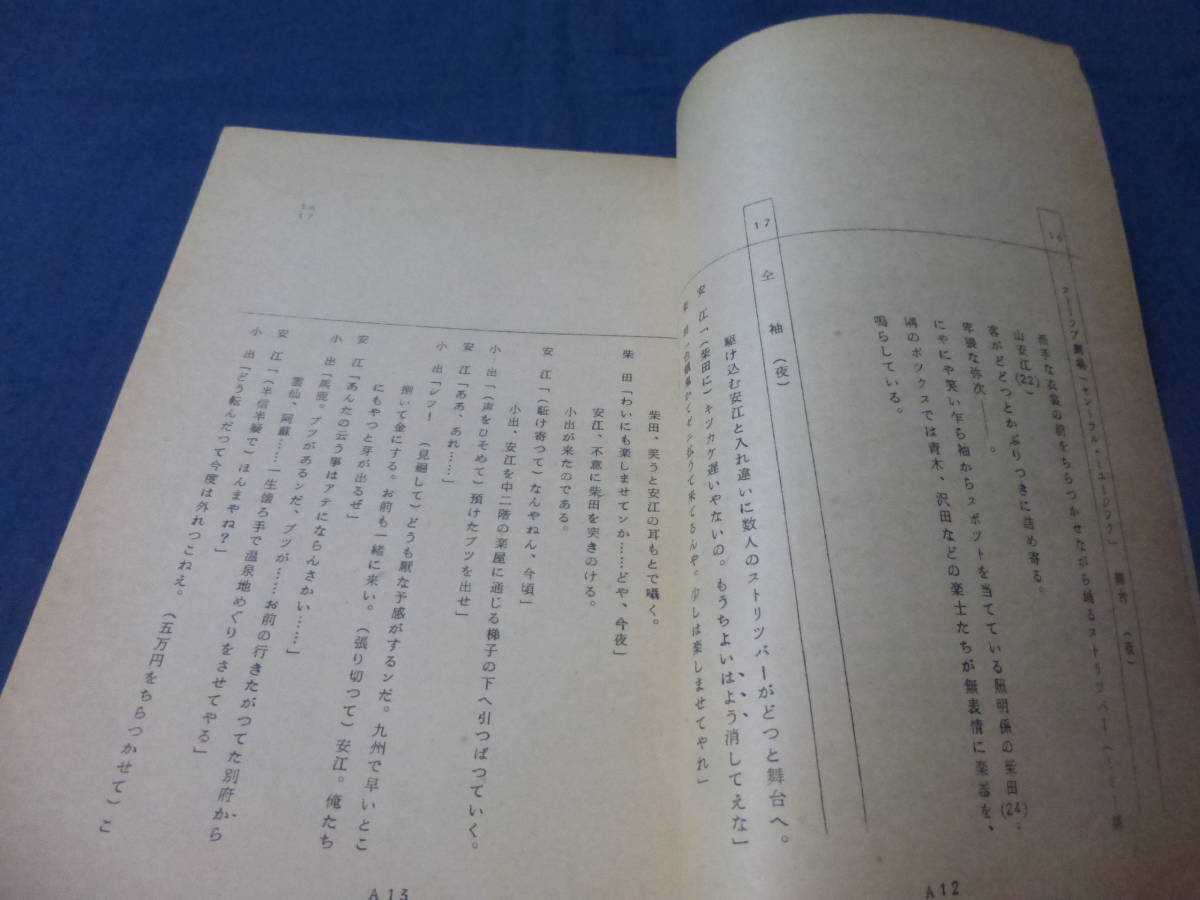 16
劇場「セントラル・ミュージック」 舞台 (夜)
派手な衣裳の裾をちらつかせながら踊るストリッパー
山安江(22)。
客がどどつとかぶりつきに詰め寄る。
卑猥な弥次――。
にやにや笑い乍ら袖からスポットを当てている照明係の柴田(24)。
隣のボックスでは青木、沢田などの楽士たちが無表情に楽器を、
鳴らしている。
17 仝 袖 (夜)
駆け込む安江と入れ違いに数人のストリツパーがどつと舞台へ。
安江「(柴田に)キツカケ遅いやないの。もうちよいはよう消してえな」
払うて来てるんや。少しは楽しませてやれ」
A12
16
17
柴田、笑うと安江の耳もとで囁く。
柴田「わいにも楽しませてンか……どや、今夜」
安江、不意に柴田を突きのける。
小出が来たのである。
安江「(駈け寄つて)なんやねん、今頃」
小出、安江を中二階の楽屋に通じる梯子の下へ引つぱつていく。
小出「(声をひそめて)預けたブツを出せ」
安江「ああ、あれ……」
小出「シツ! (見廻して)どうも厭な予感がするンだ。九州で早いとこ
捌いて金にする。お前も一緒に来い。(張り切つて)安江。俺たち
にもやつと芽が出るぜ」
安江「あんたの云う事はアテにならんさかい……」
小出「馬鹿。ブツがあるンだ、ブツが……お前の行きたがつてた別府から
雲仙、阿蘇……一生懐ろ手で温泉地めぐりをさせてやる」
安江「(半信半疑で)ほんまやね?」
小出「どう転んだつて今度は外れつこねえ。(五万円をちらつかせて)こ
A13